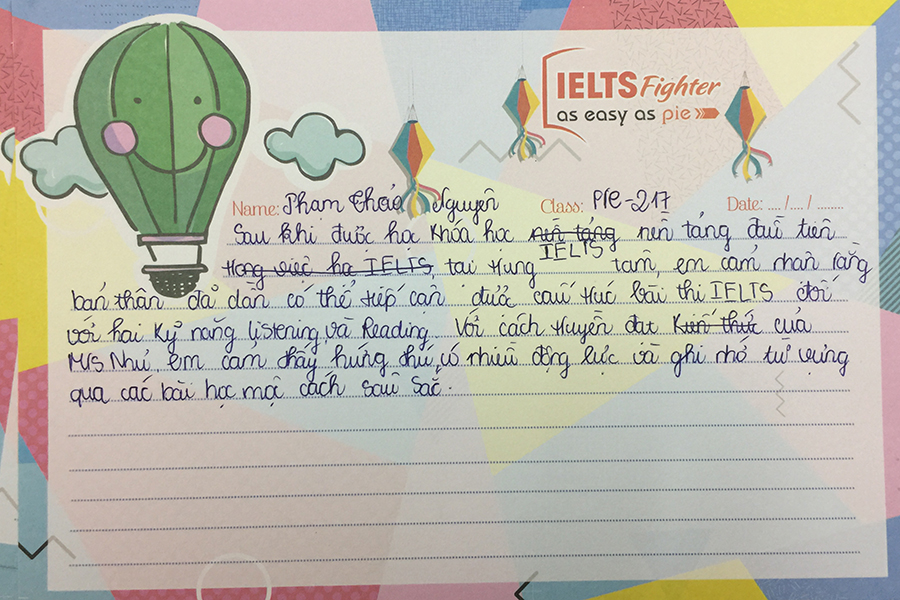 IELTS Fighter
as easy as pie
Name: Phạm Thảo Nguyên Class: PIE-217 Date: .... / ... / ........
Sau khi được học khóa học nền tảng nền tảng đầu tiên
trong việc học IELTS, tại trung IELTS tâm, em cảm nhận rằng
bản thân đã dần có thể tiếp cận được cấu trúc bài thi IELTS đối
với hai kỹ năng listening và Reading. Với cách truyền đạt kiến thức của
Ms Như, em cảm thấy hứng thú, có nhiều động lực và ghi nhớ từ vựng
qua các bài học một cách sâu sắc.